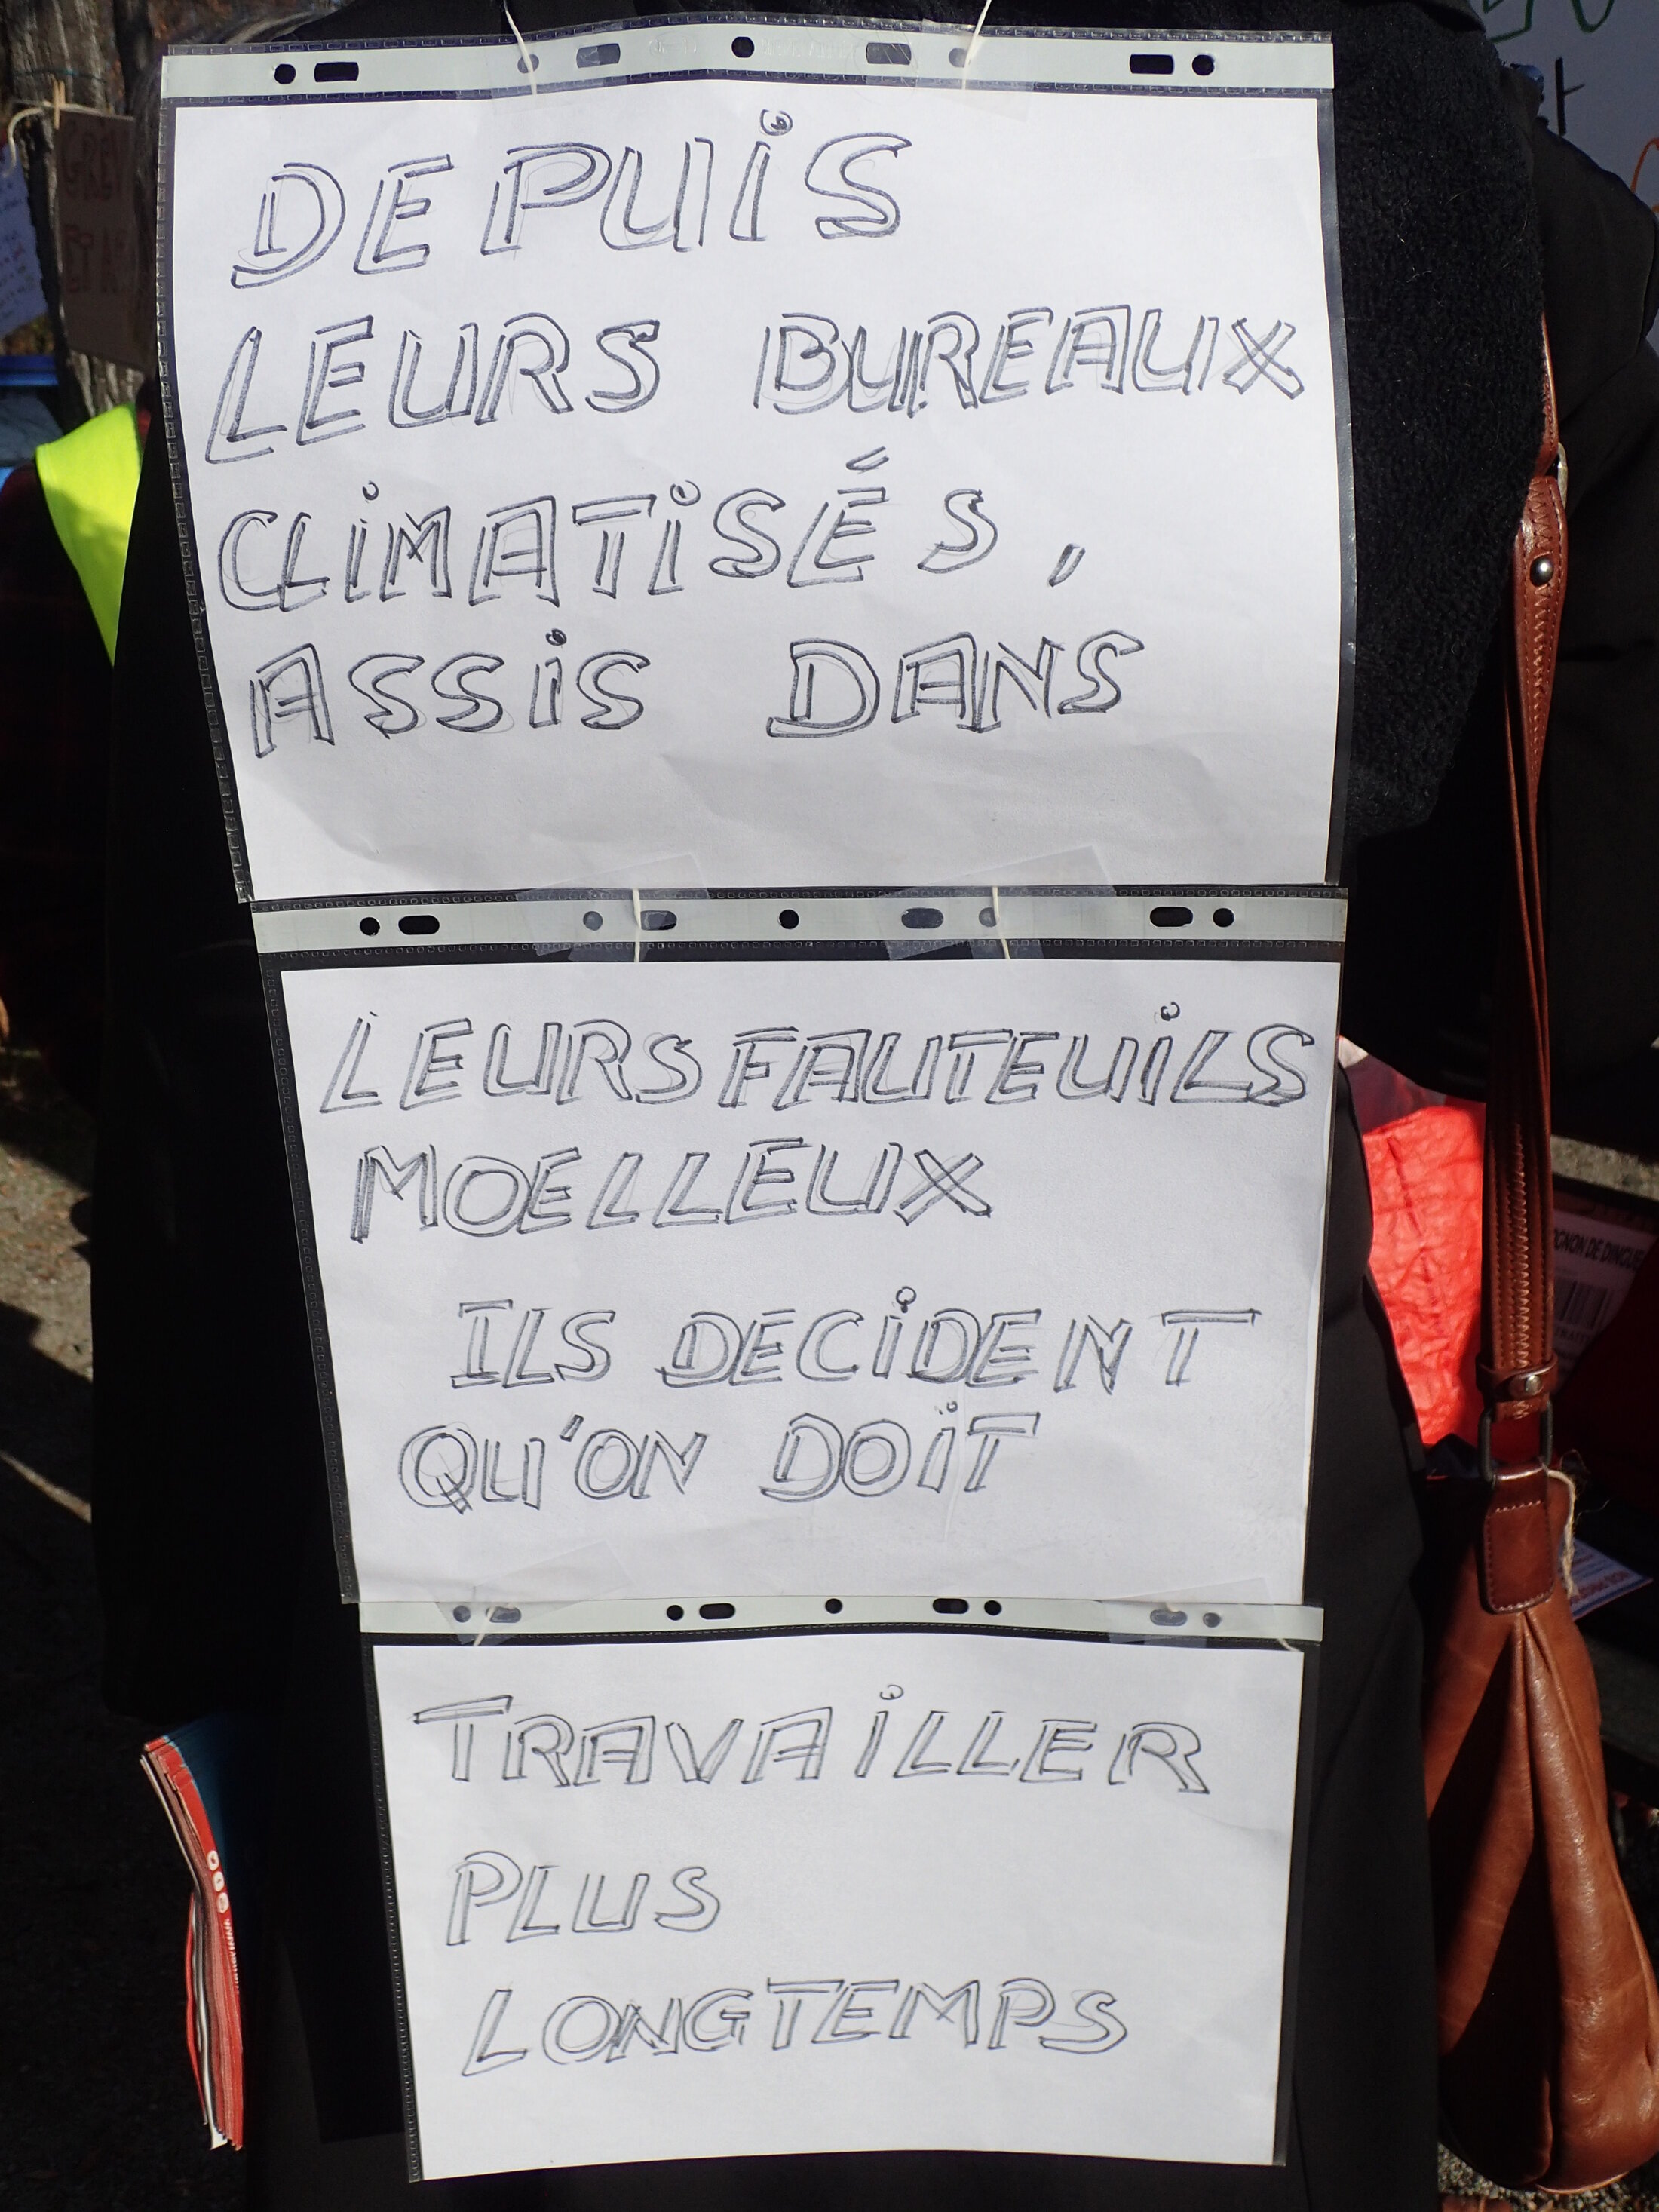 DEPUiS
LEURS BUREAUX
CLiMATiSÉS,
ASSiS DANS
LEURS FAUTEUiLS
MOELLEUX
ILS DECiDENT
QU'ON DOiT
TRAVAiLLER
PLUS
LONGTEMPS